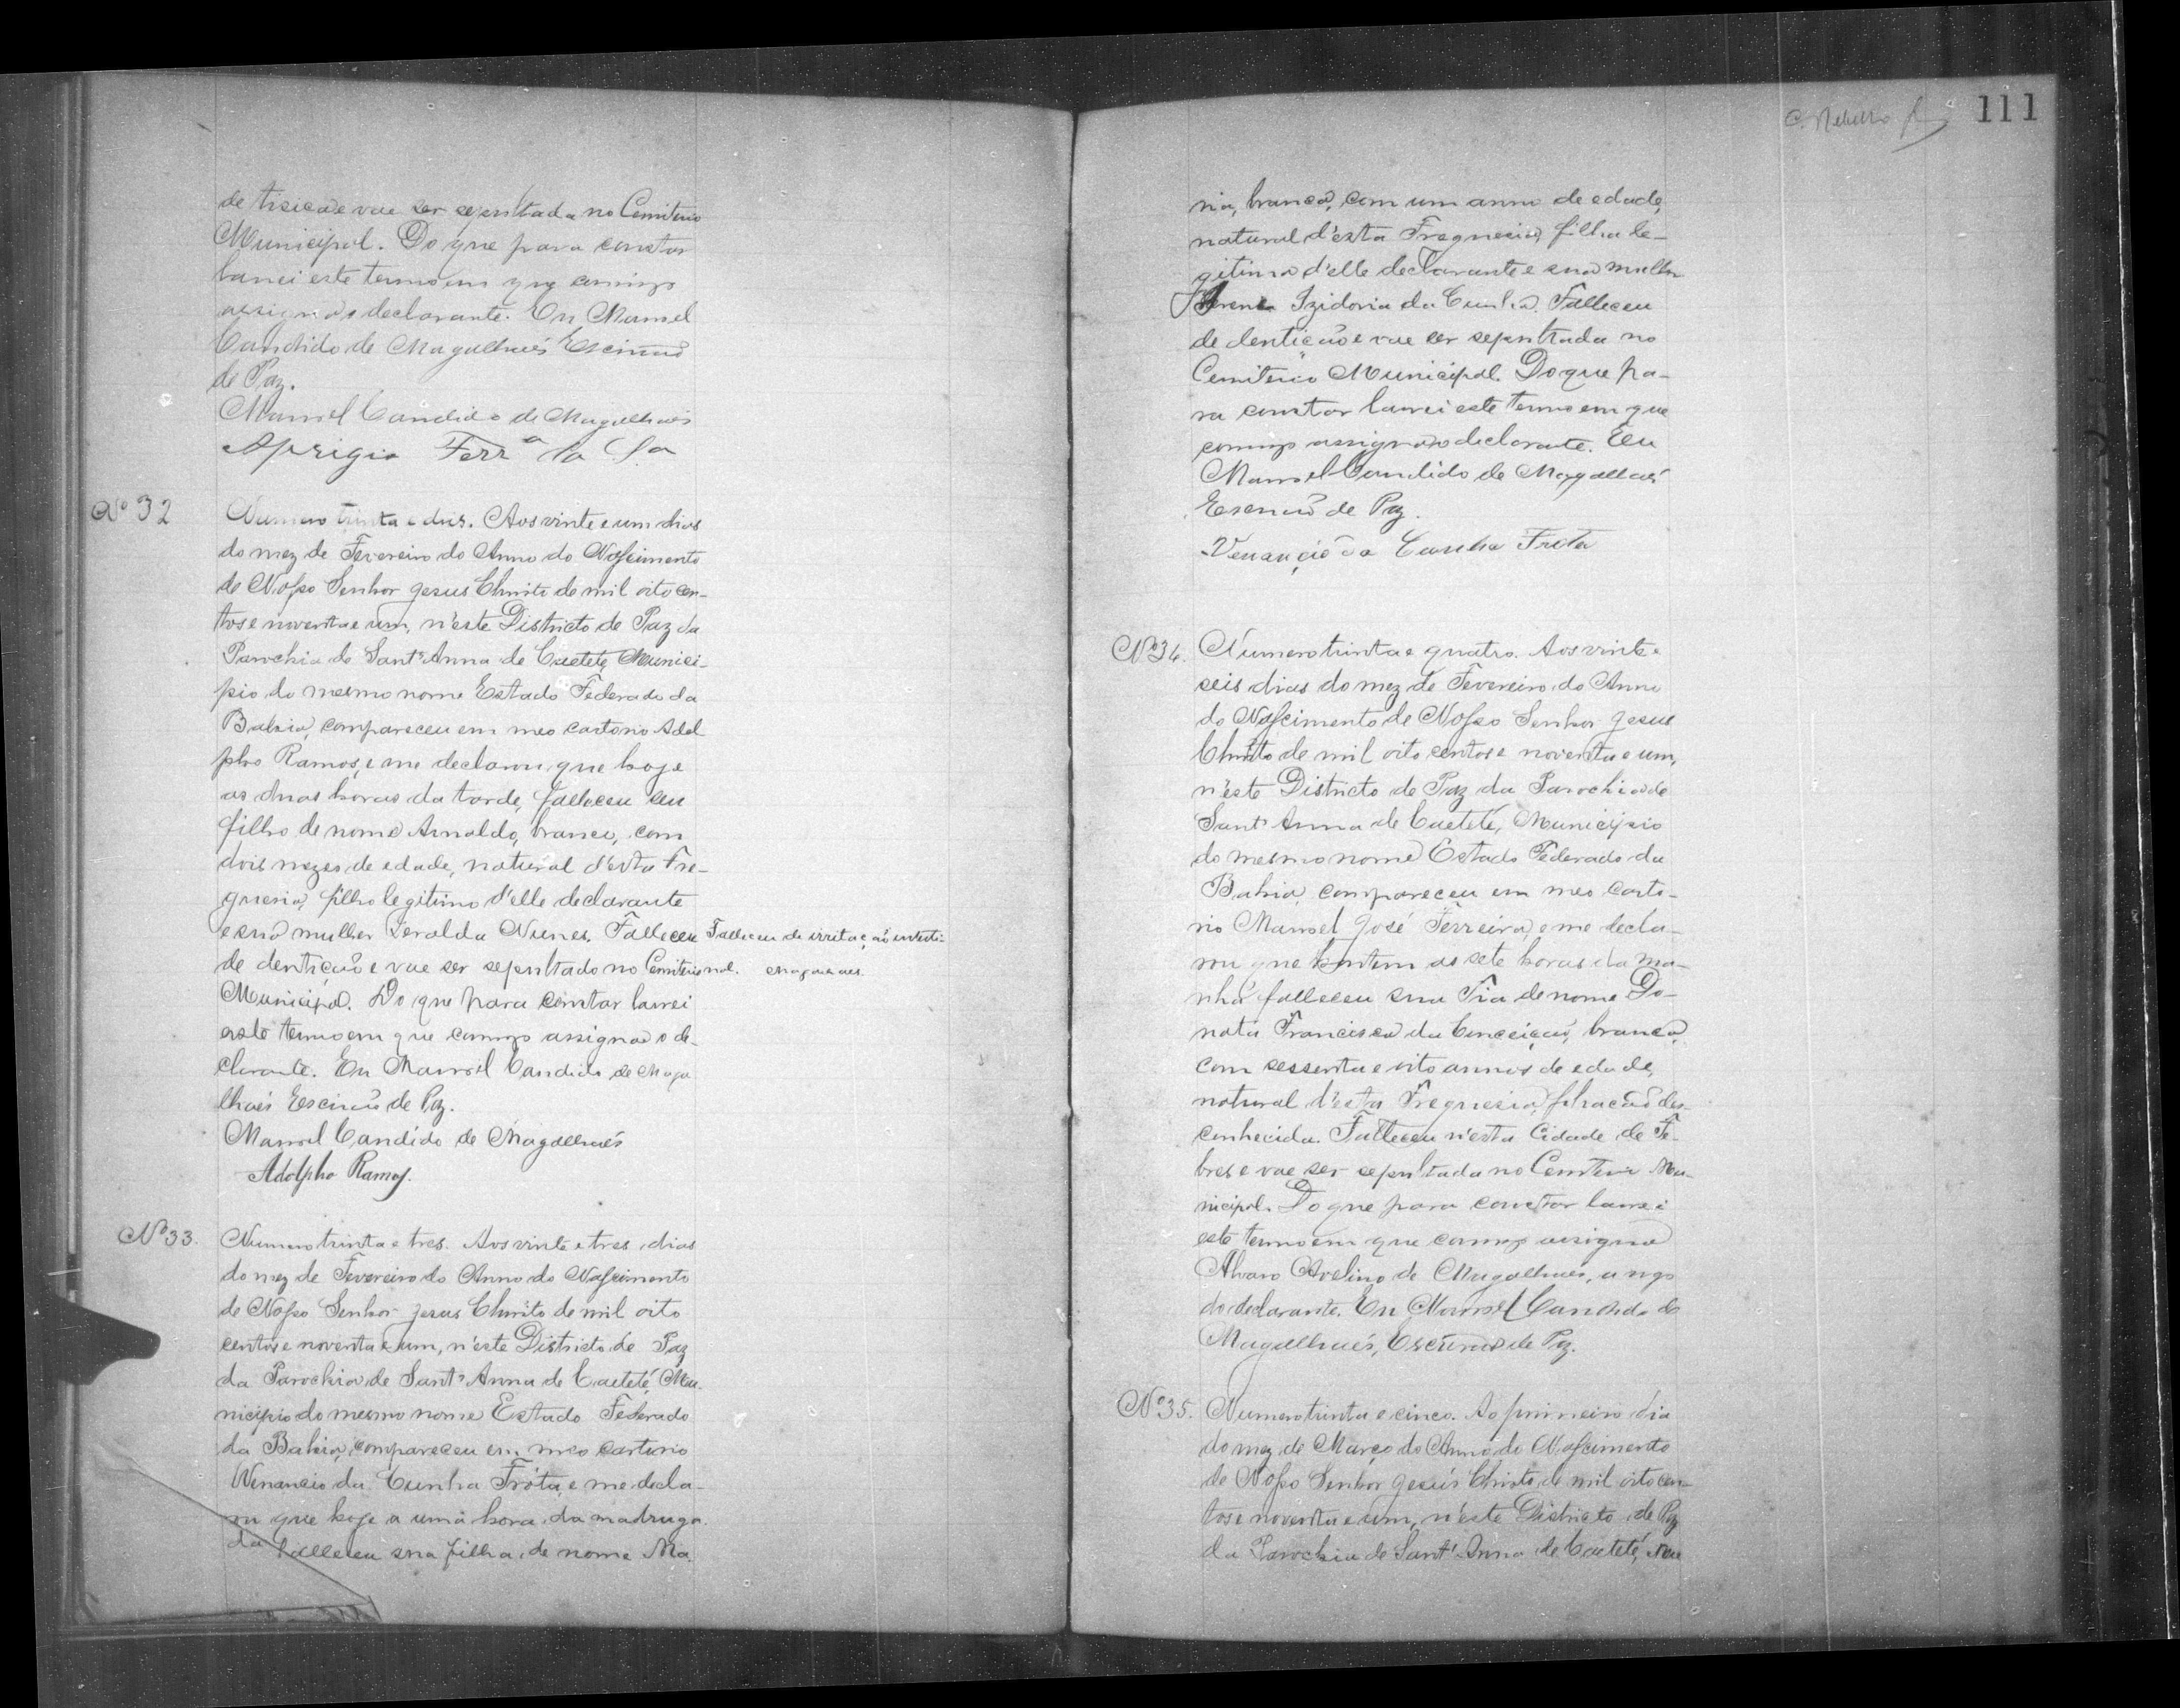 de tisica e vae ser sepultada no Cemiterio
Municipal. Do que para constar
lavrei este termo em que comigo
assigna o declarante. Eu Manoel
Candido de Magalhaẽs Escrivaõ
de Paz.
Manoel Candido de Magalhaẽs
Aprigio Ferrª
Nº 32
Numero trinta e dois. Aos vinte e um dias
do mez de Fevereiro do Anno do Nascimento
de Nosso Senhor Jesus Christo de mil oito cen-
tos e noventa e um, n'este Districto de Paz da
Parochia de Sant'Anna de Caeteté, Munici-
pio do mesmo nome Estado Federado da
Bahia, compareceu em meo cartorio Adol
pho Ramos, e me declarou que hoje
as duas horas da tarde, falleceu seu
filho de nome Arnaldo, branco, com
dois mezes de edade, natural d'esta Fre-
guesia, filho legitimo d'elle declarante
e sua mulher Geralda Nunes. Falleceu
Falleceu de irritação intesti-
de dentiçaõ e vae ser sepultado no Cemiterio
nal. Magalhaes.
Municipal. Do que para constar lavrei
este termo em que comigo assigna o de-
clarante. Eu Manoel Candido de Maga
lhaẽs Escrivaõ de Paz.
Manoel Candido de Magalhaẽs
Adolpho Ramos.
Nº 33.
Numero trinta e tres. Aos vinte e tres dias
do mez de Fevereiro do Anno do Nascimento
de Nosso Senhor Jesus Christo de mil oito
centos e noventa e um, n'este Districto de Paz
da Parochia de Sant'Anna de Caeteté, Mu-
nicipio do mesmo nome Estado Federado
da Bahia, compareceu em meo cartorio
Venancio da Cunha Fróta, e me decla-
rou que hoje a uma hora da madruga-
da falleceu sua filha de nome Ma-
111
ria, branca, com um anno de edade,
natural d'esta Freguesia, filha le-
gitima d'elle declarante e sua mulher
Izidoria da Cunha. Falleceu
de dentiçaõ e vae ser sepultada no
Cemiterio Municipal. Do que pa-
ra constar lavrei este termo em que
comigo assigna o declarante. Eu
Manoel Candido de Magalhaẽs
Escrivaõ de Paz.
Venançio da Cunha Frota
Nº 34.
Numero trinta e quatro. Aos vinte e
seis dias do mez de Fevereiro do Anno
do Nascimento de Nosso Senhor Jesus
Christo de mil oito centos e noventa e um,
n'este Districto de Paz da Parochia de
Sant'Anna de Caeteté, Municipio
do mesmo nome Estado Federado da
Bahia, compareceu em meo carto-
rio Manoel José Ferreira, e me decla-
rou que hontem as sete horas da ma-
nhã falleceu sua Tia de nome Do-
nata Francisca da Conceiçaõ, branca,
com sessenta e oito annos de edade,
natural d'esta Freguesia, filiaçaõ des-
conhecida. Falleceu n'esta Cidade de Fe-
bres e vae ser sepultada no Cemiterio Mu-
nicipal. Do que para constar lavrei
este termo em que comigo assigna
Alvaro Avelino de Magalhaẽs, a rogo
do declarante. Eu Manoel Candido de
Magalhaẽs, Escrivaõ de Paz.
Nº 35.
Numero trinta e cinco. Ao primeiro dia
do mez de Março do Anno do Nascimento
de Nosso Senhor Jesus Christo de mil oito cen-
tos e noventa e um, n'este Districto de Paz
da Parochia de Sant'Anna de Caeteté, Mu